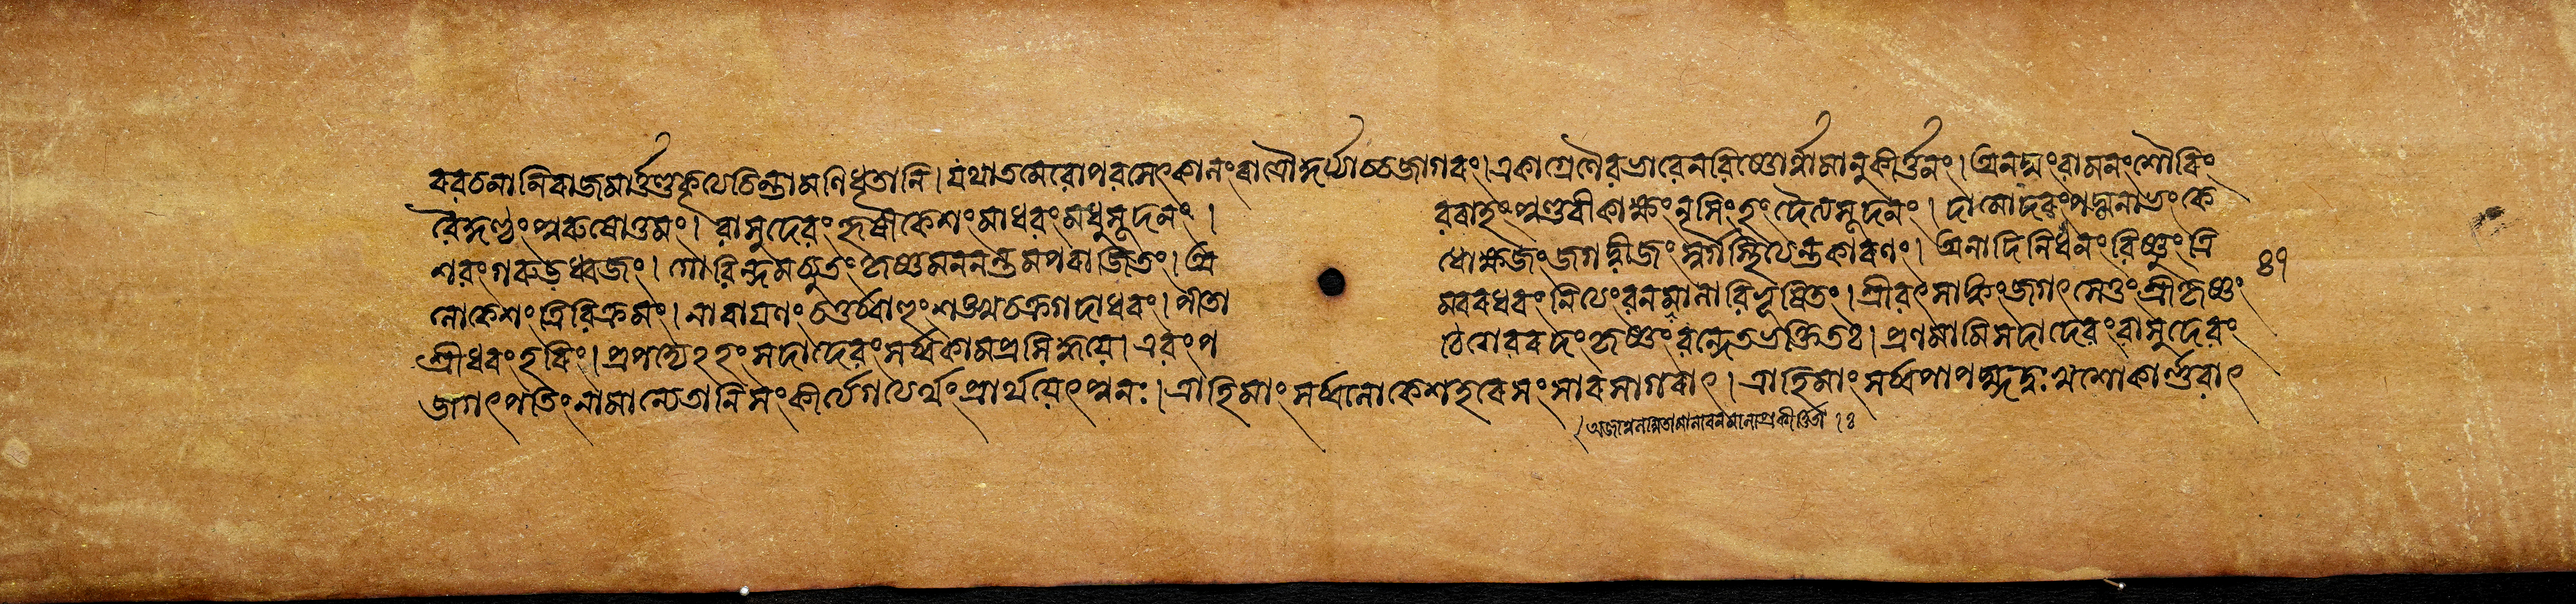 বরচনানিরাজমার্ত্তণ্ডকৃত্যচিন্তামণিধৃতানি। যথা তমেবোপবসেৎকালংরাত্রৌকুর্য্যাচ্চজাগরং। একাগ্রেণৈবভাবেনবিষ্ণোর্নামানুকীর্ত্তনং। অনঘংবামনংশৌরিং
বৈকুণ্ঠংপুরুষোত্তমং। বাসুদেবংহৃষীকেশংমাধবংমধুসূদনং। বরাহংপুণ্ডরীকাক্ষংনৃসিংহংদৈত্যসূদনং। দামোদরংপদ্মনাভংকে
শবংগরুড়ধ্বজং। গোবিন্দমচ্যুতংকৃষ্ণমনন্তমপরাজিতং। অধোক্ষজংজগদ্বীজংসর্গস্থিত্যন্তকারণং। অনাদিনিধনংবিষ্ণুংত্রি ৪৭
লোকেশংত্রিবিক্রমং। নারায়ণংচতুর্ব্বাহুংশঙ্খচক্রগদাধরং। পীতাম্বরধরংনিত্যংবনমালাবিভূষিতং। শ্রীবৎসাঙ্কিংজগৎসেতুংশ্রীকৃষ্ণং
শ্রীধরংহরিং। প্রপদ্যেঽহংসদাদেবংসর্ব্বকামপ্রসিদ্ধয়ে। এবংপঠেশেবরদংকৃষ্ণংবন্দেতভক্তিতঃ। প্রণমামিসদাদেবংবাসুদেবং
জগৎপতিংনামান্যেতানিসংকীর্ত্যগত্যর্থংপ্রার্থয়েৎপুনঃ। ত্রাহিমাংসর্ব্বলোকেশহরেসংসারসাগরাৎ। ত্রাহিমাংসর্ব্বপাপঘ্নদুঃখশোকার্ণবাৎ